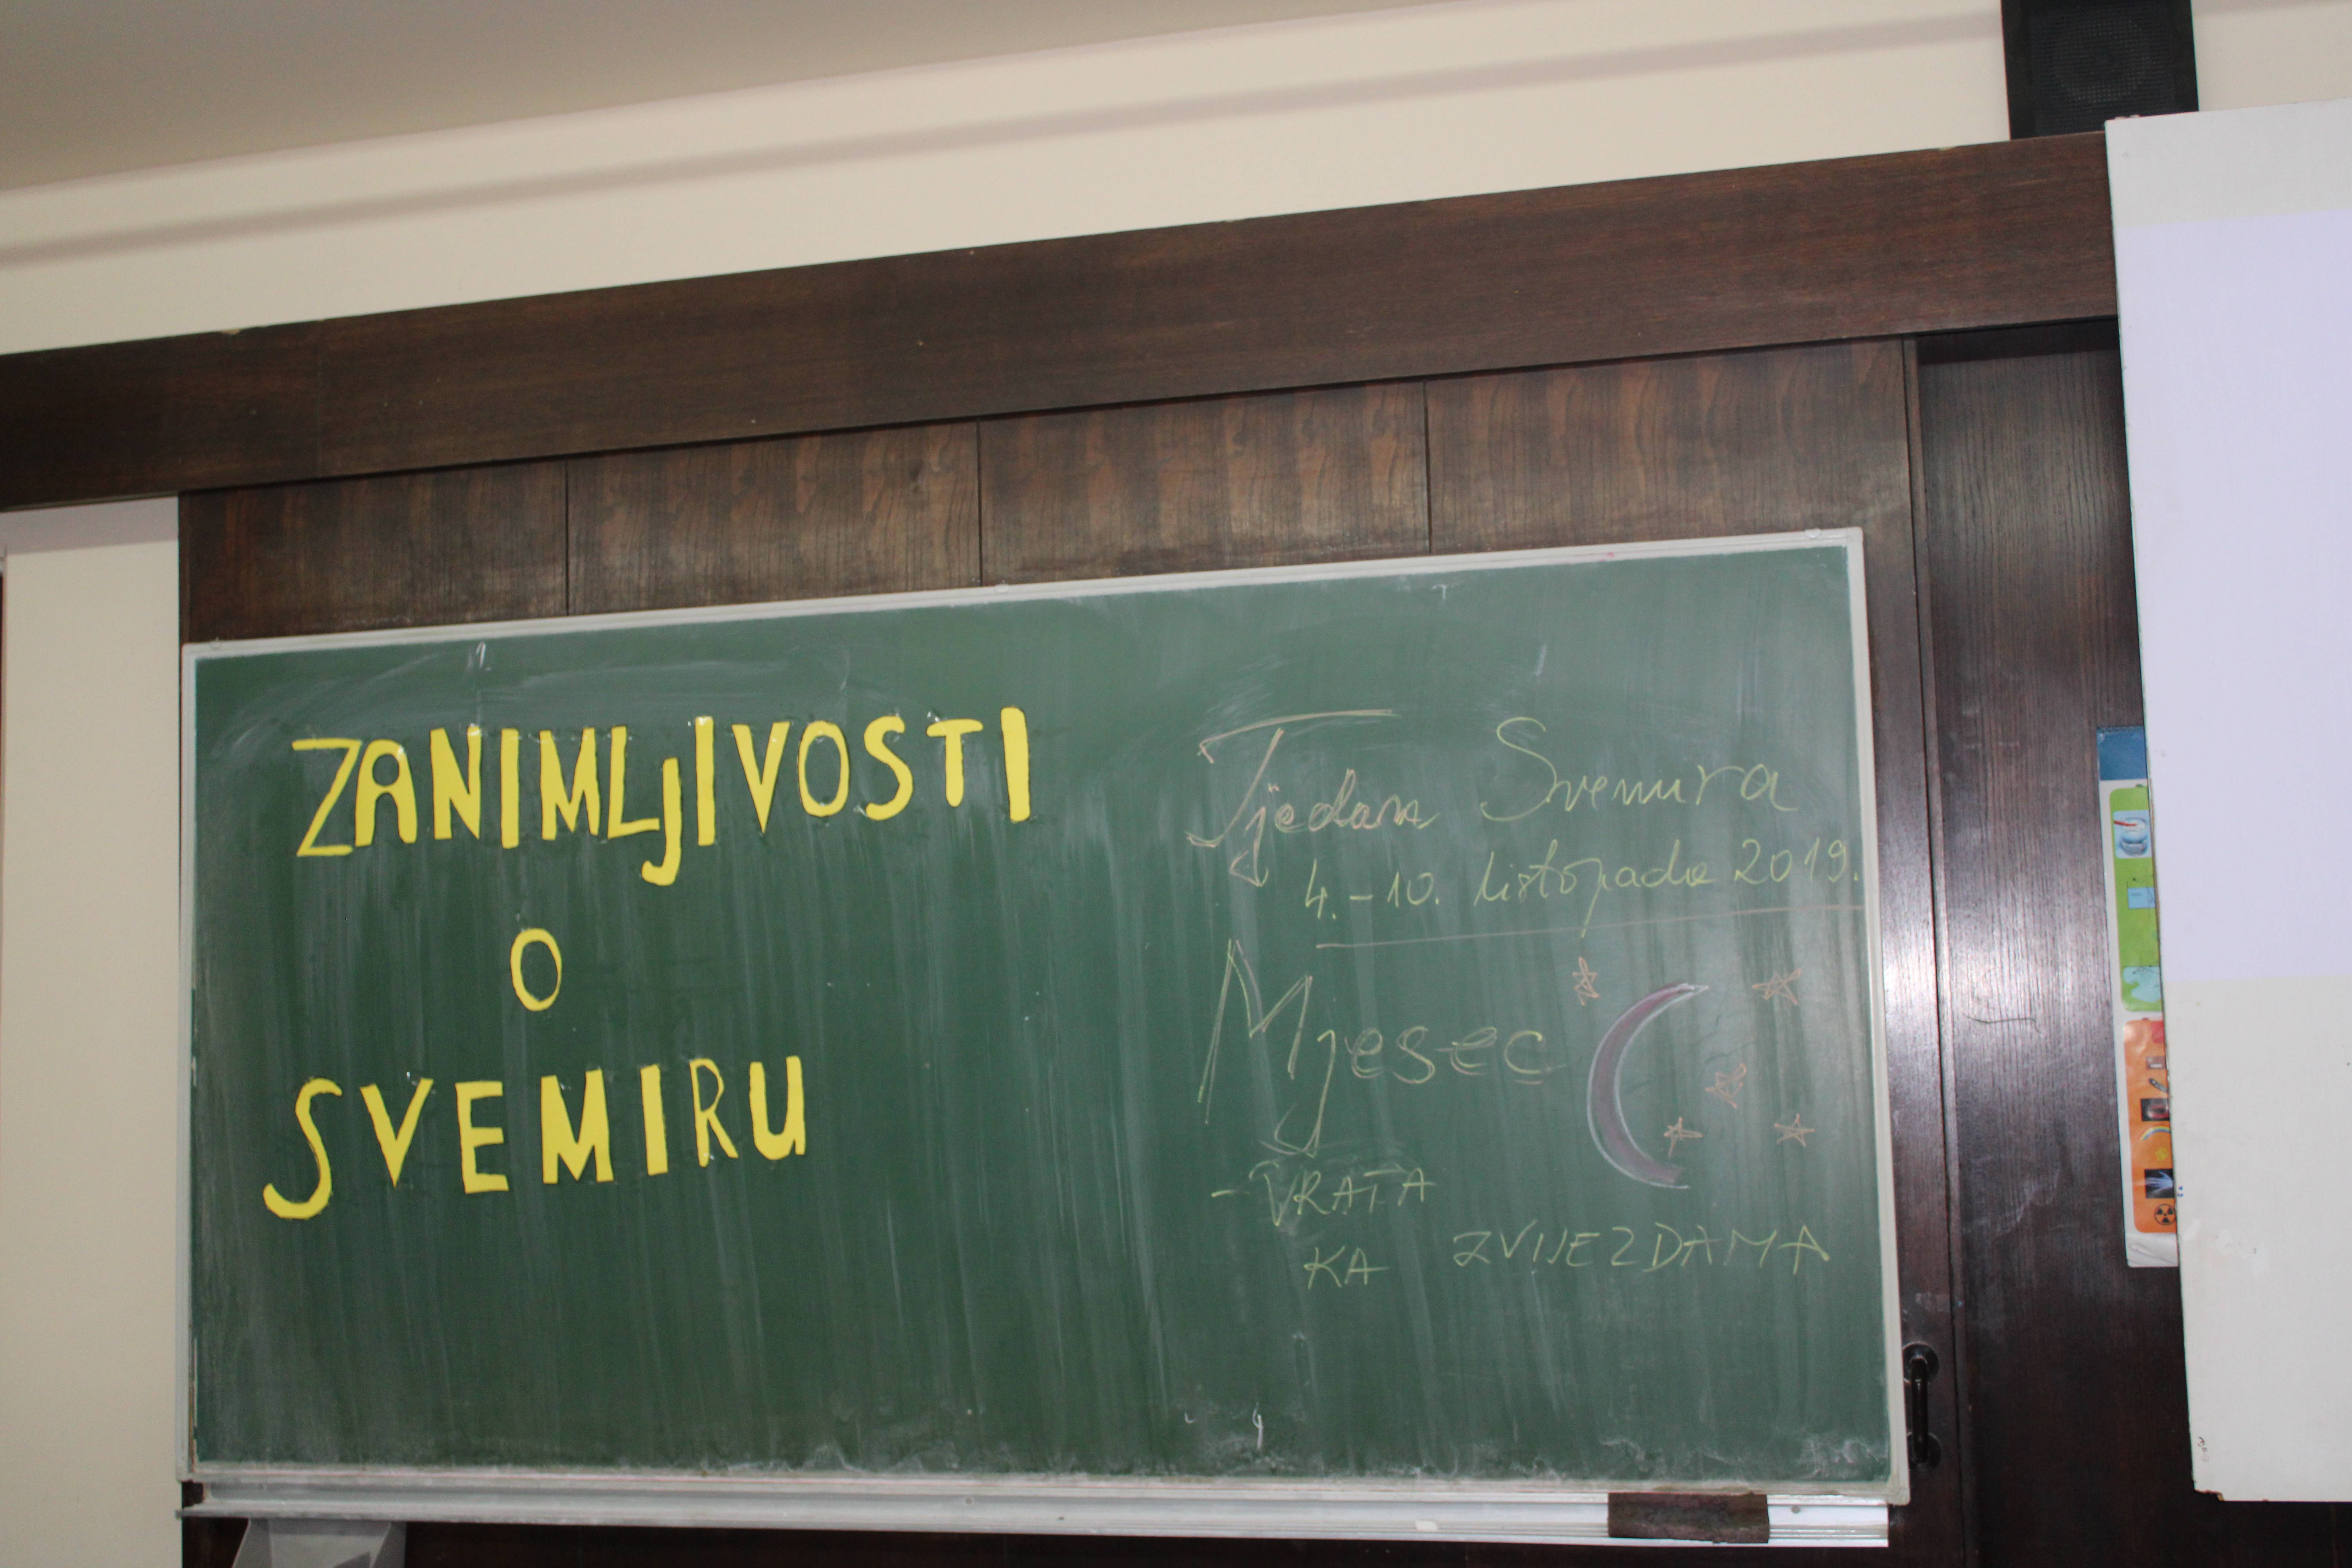 ZANIMLjIVOSTI
O
SVEMIRU
Tjedan Svemira
4.-10. listopada 2019.
Mjesec
- VRATA
KA ZVIJEZDAMA